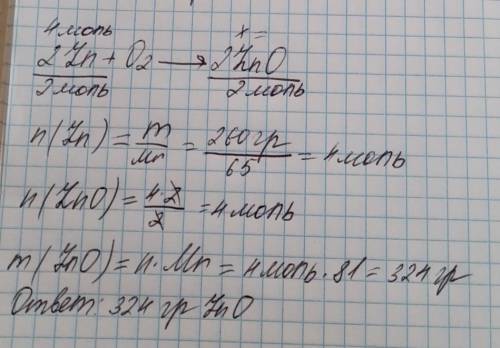 4 моль x =
2Zn + O₂ → 2ZnO
2 моль 2 моль
n(Zn) = m/Mr = 260гр/65 = 4 моль
n(ZnO) = 4·2/2 = 4 моль
m(ZnO) = n·Mr = 4 моль·81 = 324 гр
Ответ: 324 гр ZnO